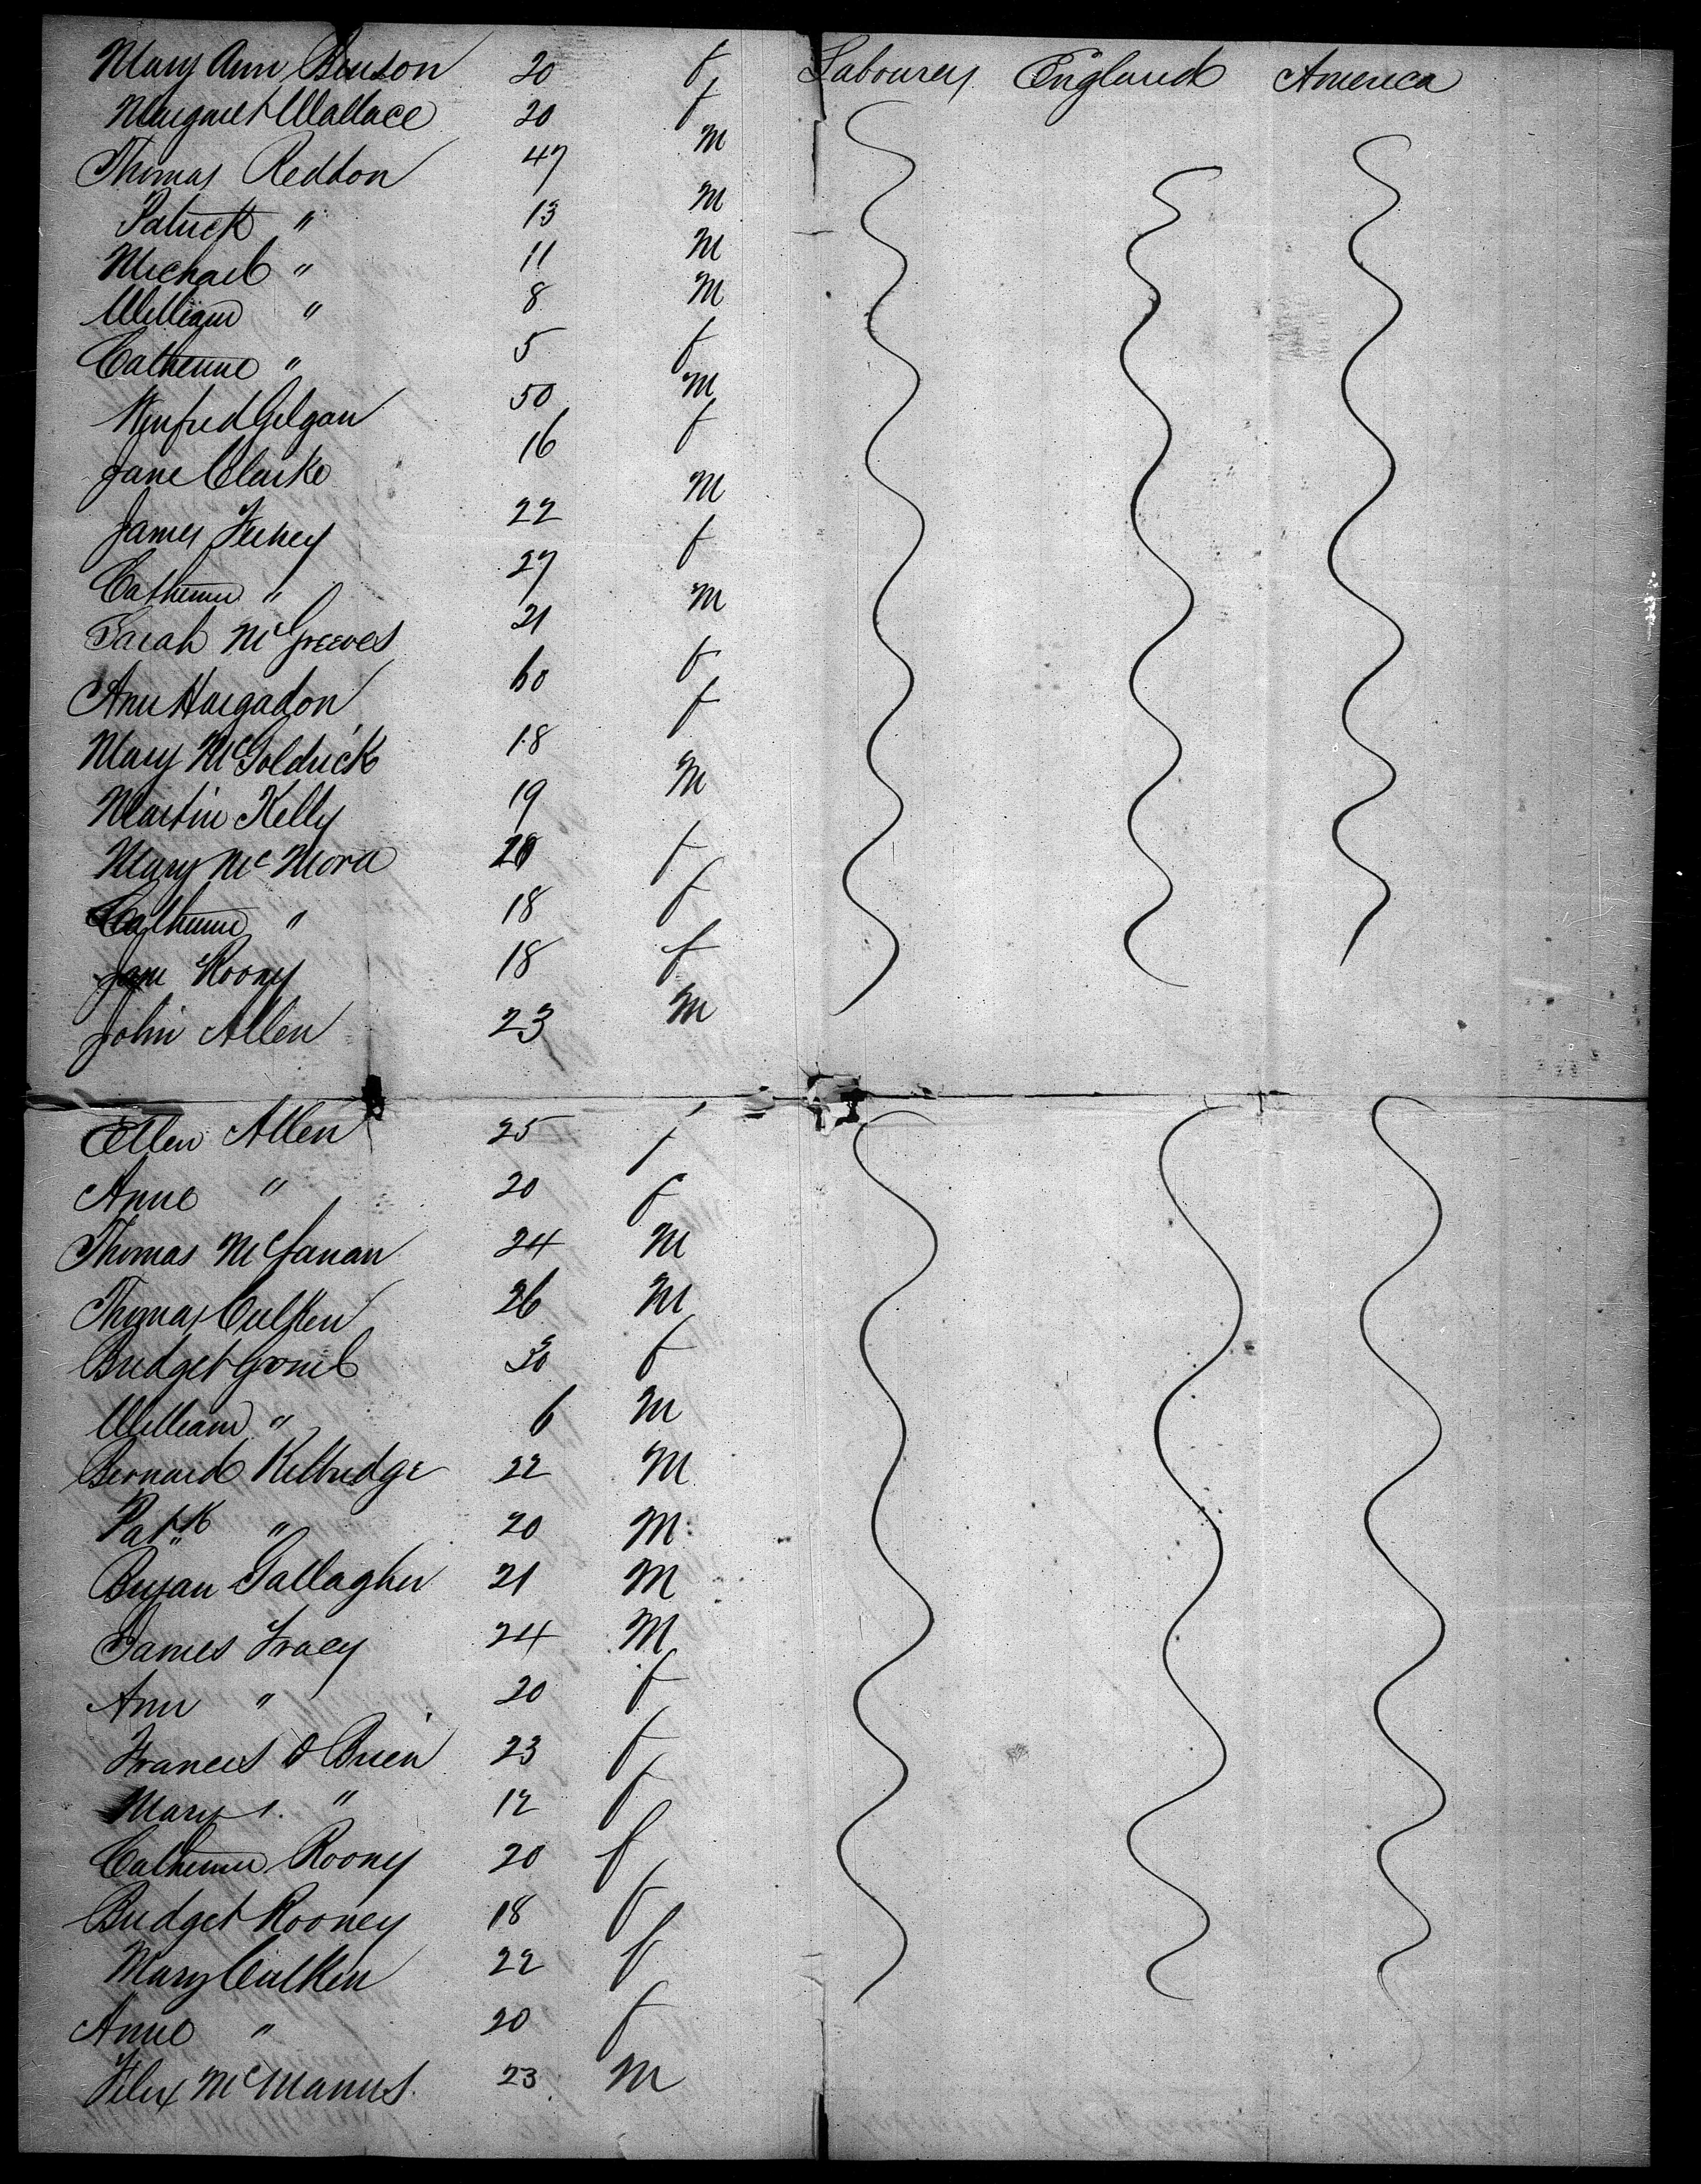 Mary Ann Benson 20 f Labourers England America
Margaret Wallace 20 f
Thomas Reddon 47 M
Patrick " 13 M
Michael " 11 M
William " 8 M
Catherine " 5 f
Winfred Gilgan 50 M
Jane Clarke 16 f
James Feeney 22 M
Catherine " 27 f
Sarah McGreeves 21 M
Ann Hargadon 60 f
Mary McGoldrick 18 f
Martin Kelly 19 M
Mary McMora 20 f
Catherine " 18 f
Jane Roony 18 f
John Allen 23 M
Ellen Allen 25 f
Anne " 20 f
Thomas 24 M
Thomas Culken 26 M
Bridget 30 f
William " 6 M
Bernard Kilbridge 22 M
Patk " 20 M
Bryan Gallagher 21 M
James Tracy 24 M
Ann " 20 f
Frances O Brien 23 f
Mary " 12 f
Catherine Roony 20 f
Bridget Rooney 18 f
Mary Culken 22 f
Anne " 20 f
Felix McManus 23 M